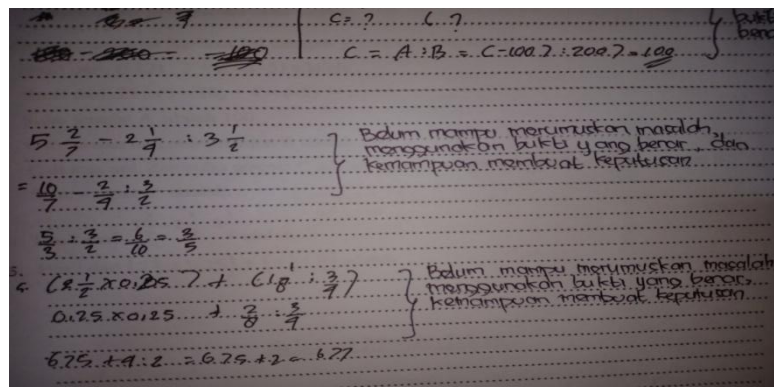 C = ? ( ?
C = A : B = (-100) : 200) = 100
bukti
benar
5 2/7 - 2 1/9 : 3 1/2
= 10/7 - 2/9 : 3/2
5/3 : 3/2 = 6/10 = 3/5
Belum mampu merumuskan masalah,
menggunakan bukti yang benar, dan
kemampuan membuat keputusan
(2 1/2 x 0,25) + (1 1/8 : 3/9)
0,25 x 0,25 + 2/8 : 3/9
6,25 + 9 : 2 = 6,25 + 2 = 6,27
Belum mampu merumuskan masalah
menggunakan bukti yang benar,
kemampuan membuat keputusan